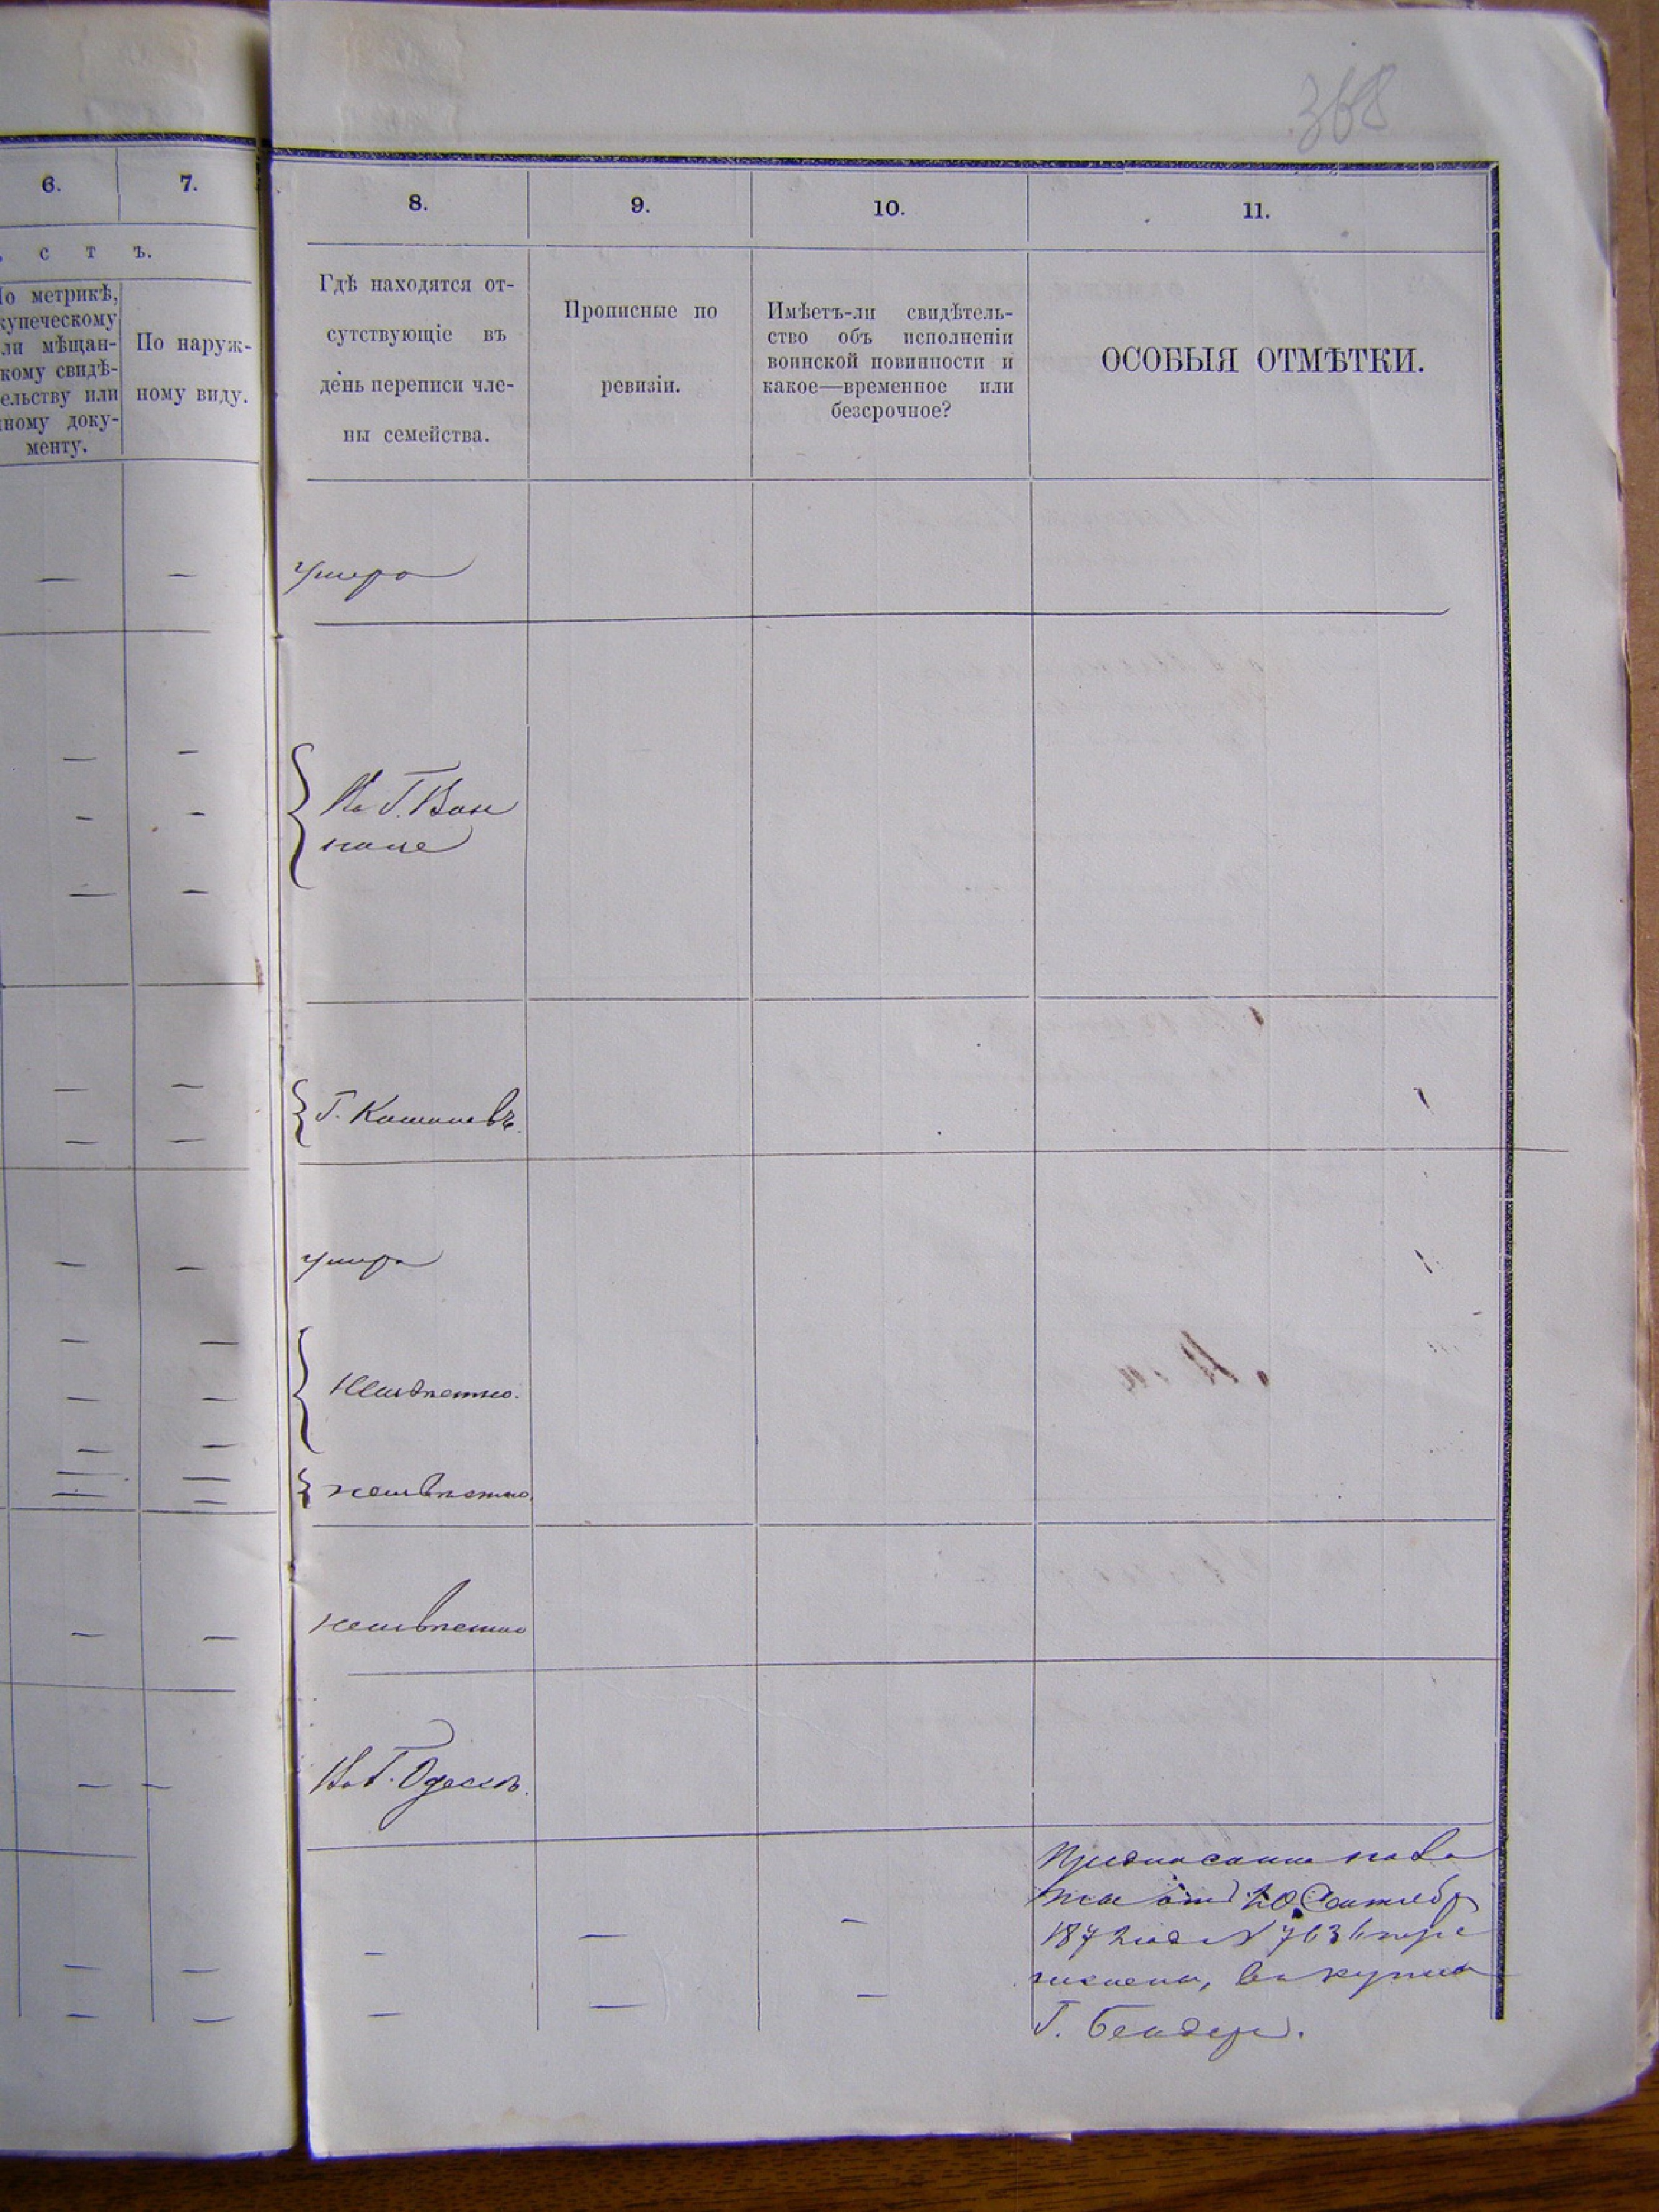 368
6.
7.
8.
9.
10.
11.
с т ъ.
о метрикѣ,
купеческому
ли мѣщан-
кому свидѣ-
ельству или
ному доку-
менту.
По наруж-
ному виду.
Гдѣ находятся от-
сутствующіе въ
день переписи чле-
ны семейства.
Прописные по
ревизіи.
Имѣетъ-ли свидѣтель-
ство объ исполненіи
воинской повинности и
какое—временное или
безсрочное?
ОСОБЫЯ ОТМѢТКИ.
Умеръ
Г.
Г. Кишиневъ.
умеръ
Неизвѣстно.
неизвѣстно
неизвѣстно
Въ Г. Одессѣ.
20 Сентябр
187
Г. Бендеры.